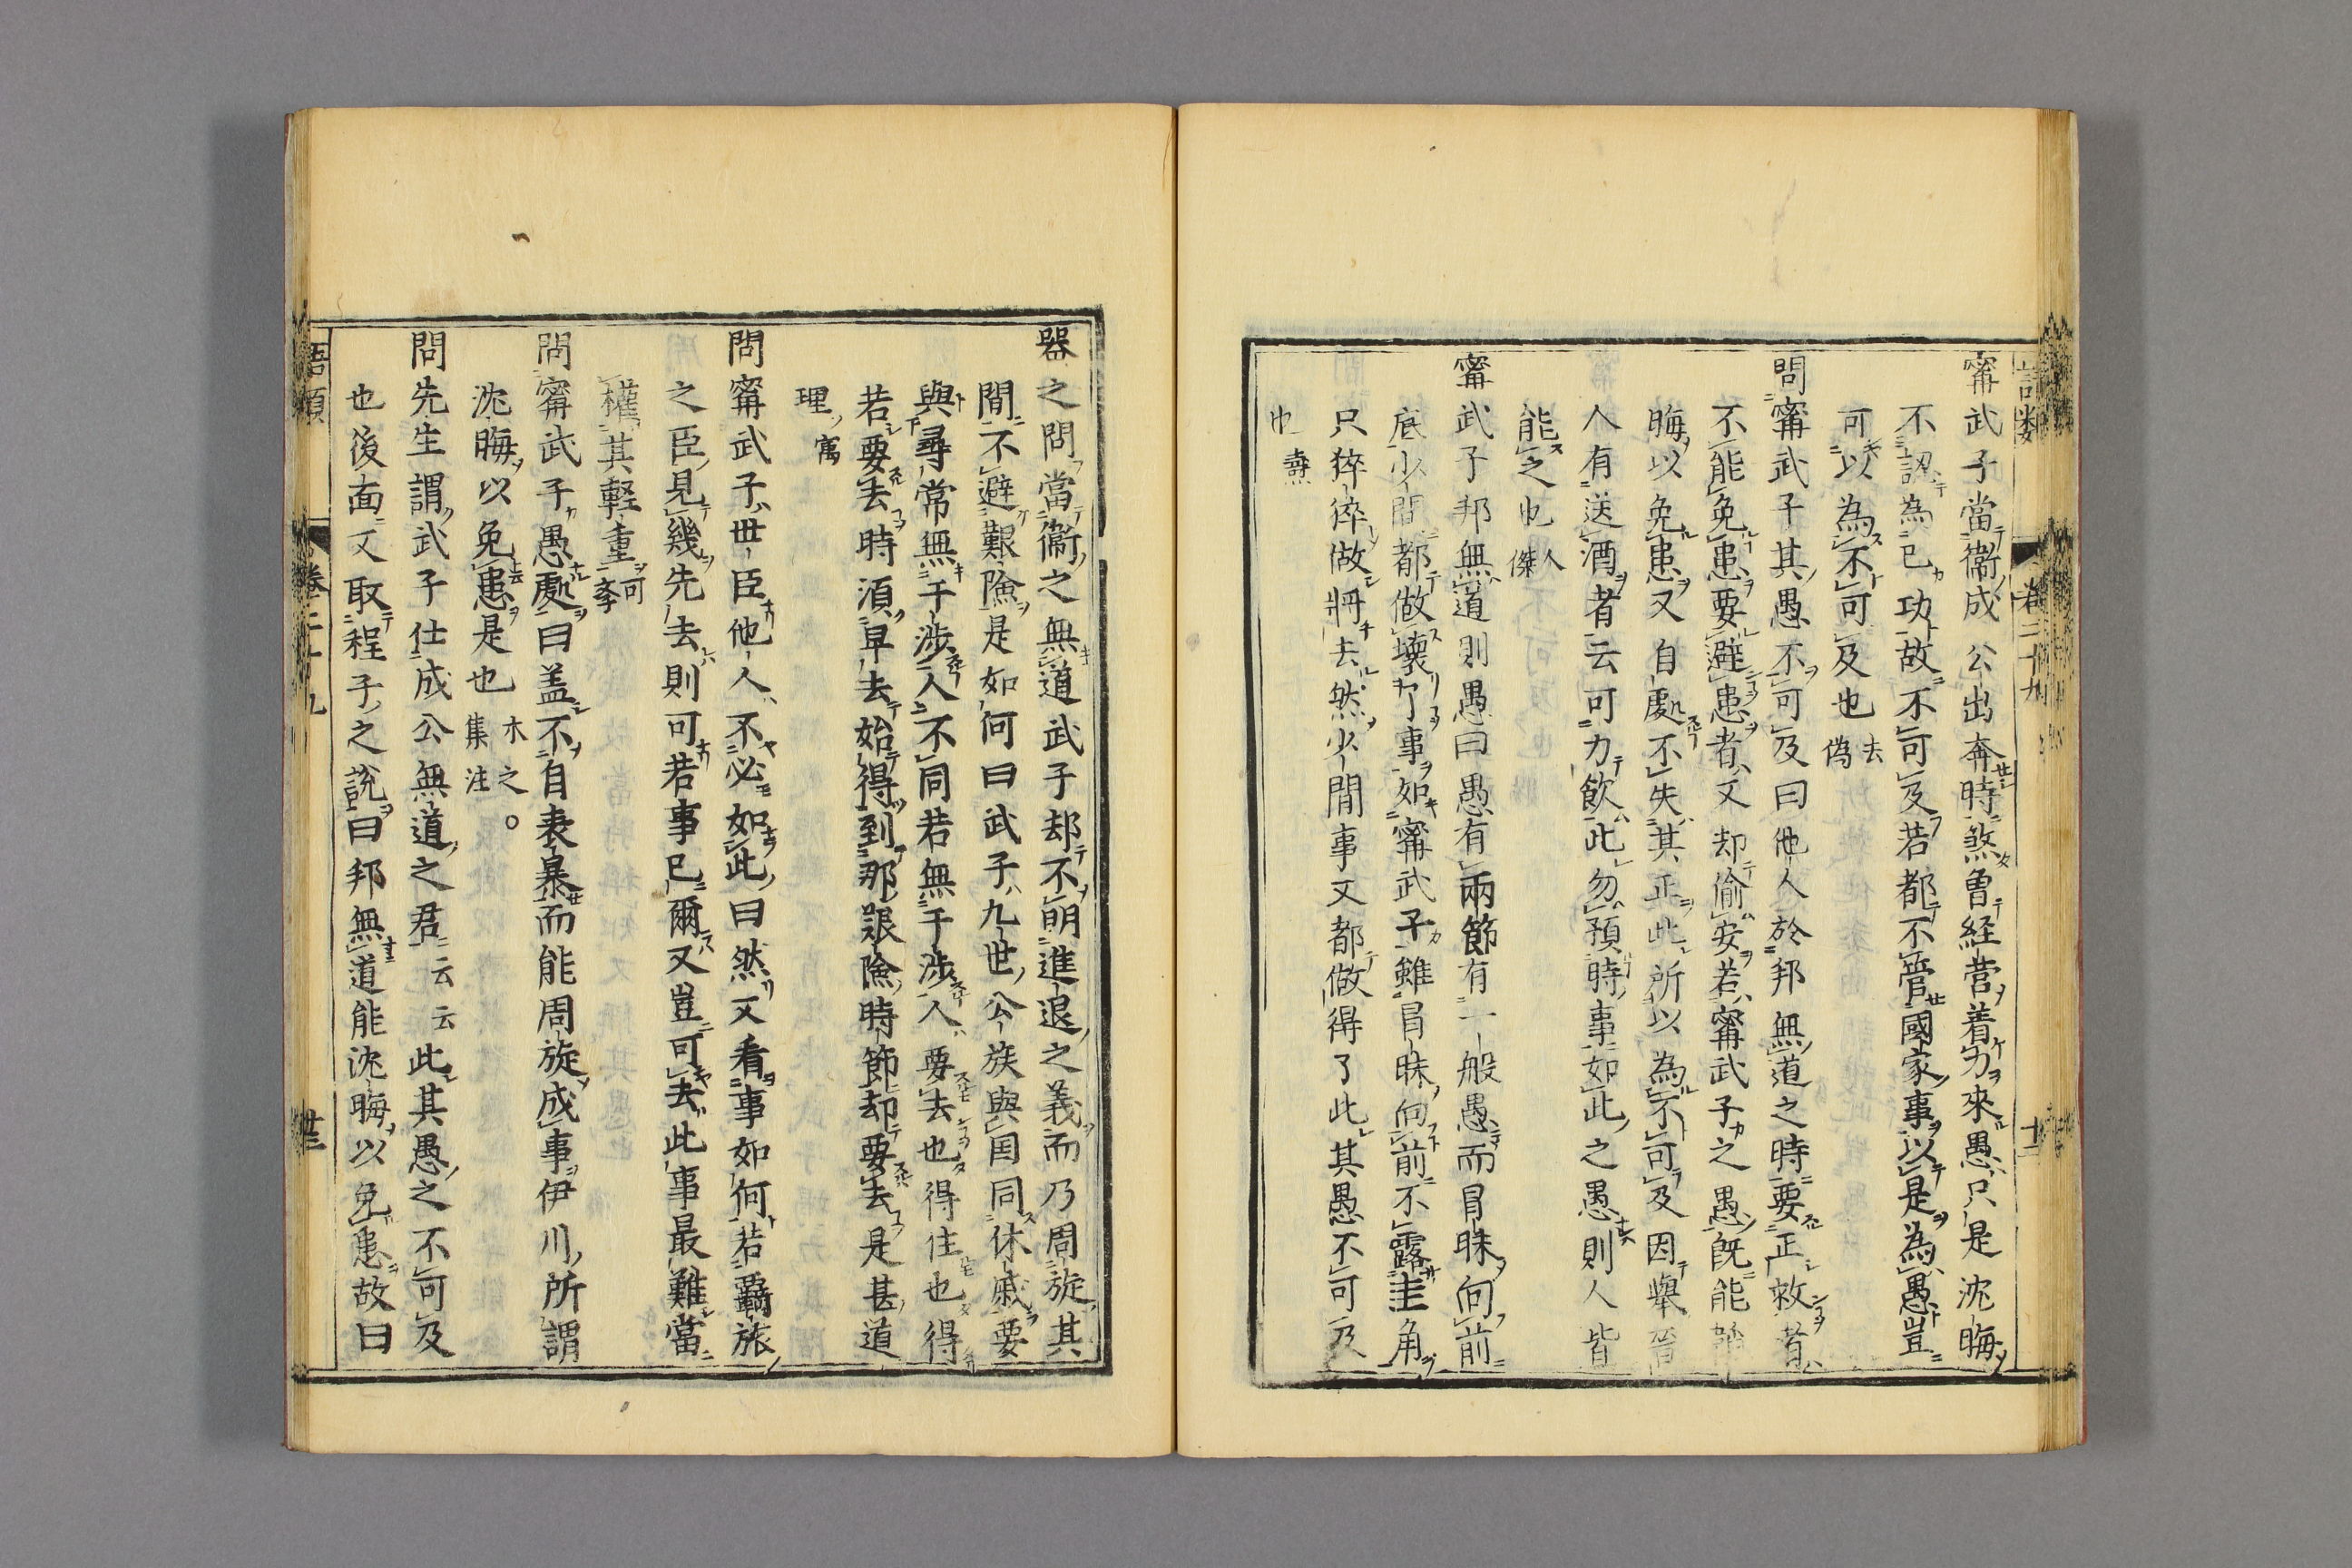 甯武子當衞成公出奔時煞曽経営着力來愚只是沈晦
不認為己功故不可及若都不管國家事以是為愚豈
可以為不可及也去偽
問甯武子其愚不可及曰他人於邦無道之時要正救者
不能免患要避患者又却偷安若甯武子之愚既能韜
晦以免患又自處不失其正此所以為不可及因舉晉
人有送酒者云可力飲此勿預時事如此之愚則人皆
能之也人傑
甯武子邦無道則愚曰愚有兩節有一般愚而冒昧向前
底少間都做壊了事如甯武子雖冒昧向前不露圭角
只猝猝做將去然少間事又都做得了此其愚不可及
也燾
語類
卷二十九
器之問當衞之無道武子却不明進退之義而乃周旋其
間不避艱險是如何曰武子九世公族與国同休戚要
與尋常無干渉人不同若無干渉人要去也得住也得
若要去時湏早去始得到那艱險時節却要去是甚道
理㝢
問甯武子世臣他人不必如此曰然又看事如何若羈旅
之臣見幾先去則可若事已爾又豈可去此事最難當
權其輕重可學
問甯武子愚處曰盖不自表暴而能周旋成事伊川所謂
沈晦以免患是也木之集注
問先生謂武子仕成公無道之君云云此其愚之不可及
也後面又取程子之說曰邦無道能沈晦以免患故曰
語類
卷二十九